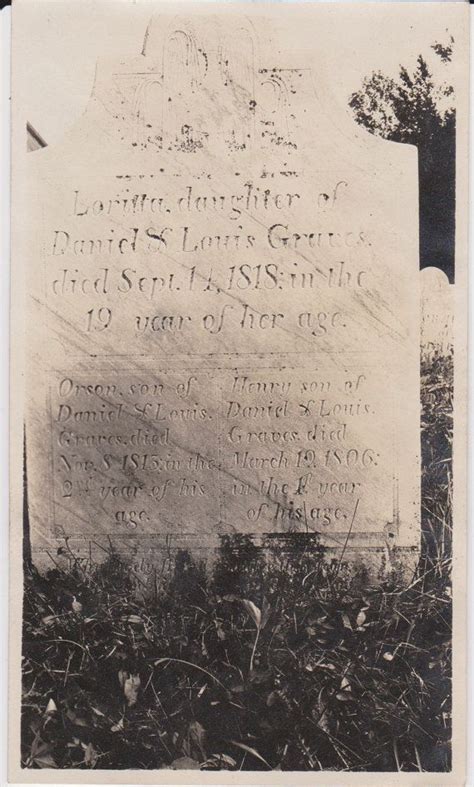 Loritta, daughter of
Daniel & Louis Graves.
died Sept. 14, 1818: in the
19 year of her age.
Orson, son of
Daniel & Louis.
Graves. died
Nov. 8 1815: in the
2d year of his
age.
Henry son of
Daniel & Louis.
Graves. died
March 19, 1806:
in the 1st year
of his age.